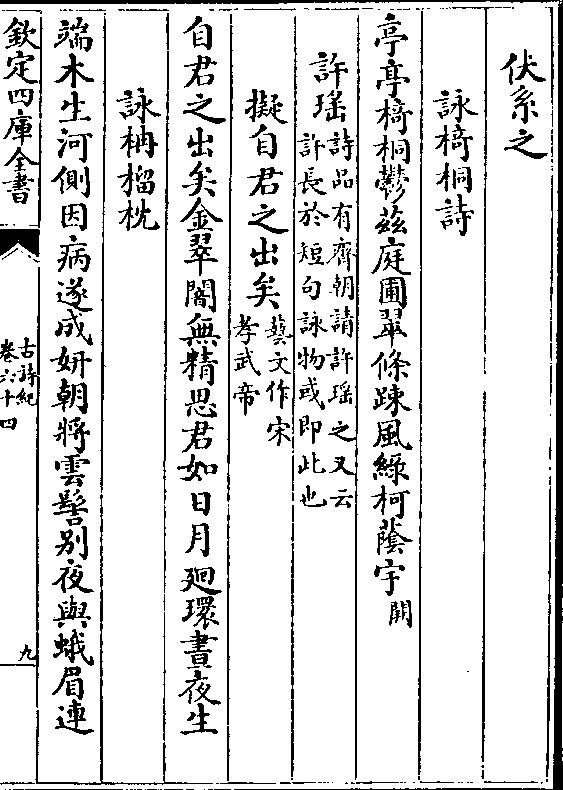 伏系之
詠㨢桐詩
亭亭㨢桐鬱兹庭圃翠條踈風綠柯蔭宇闕
許瑶詩品有齊朝請許瑶之又云
許長於短句詠物或即此也
擬自君之出矣藝文作宋
孝武帝
自君之出矣金翠闇無精思君如日月廻環晝夜生
詠柟榴枕
端木生河側因病遂成妍朝將雲髻别夜與蛾眉連
欽定四庫全書
古詩紀
卷六十四
九